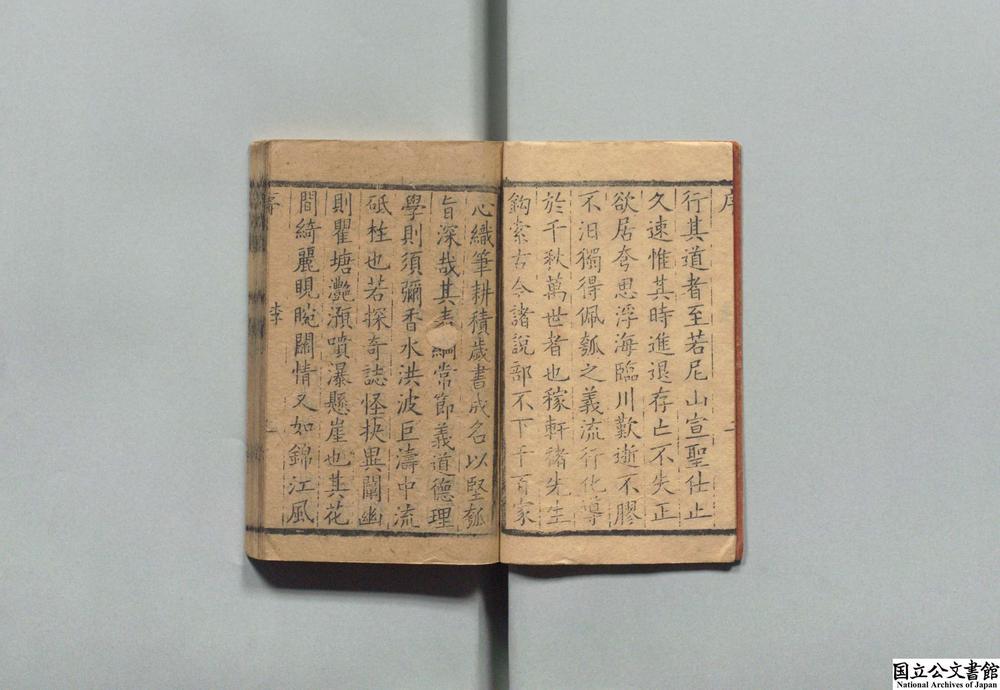 序
行其道者至若尼山宣聖仕止
久速惟其時進退存亡不失正
欲居夸思浮海臨川歎逝不膠
不汨獨得佩瓠之義流行化導
於千秋萬世者也稼軒諸先生
鈎索古今諸說部不下千百家
心織筆耕積歲書成名以堅瓠
旨深哉其表綱常節義道德理
學則須彌香水洪波巨濤中流
砥柱也若探奇誌怪抉異闡幽
則瞿塘灧澦噴瀑懸崖也其花
間綺麗睍睆閑情又如錦江風
序
李
国立公文書館
National Archives of Japan